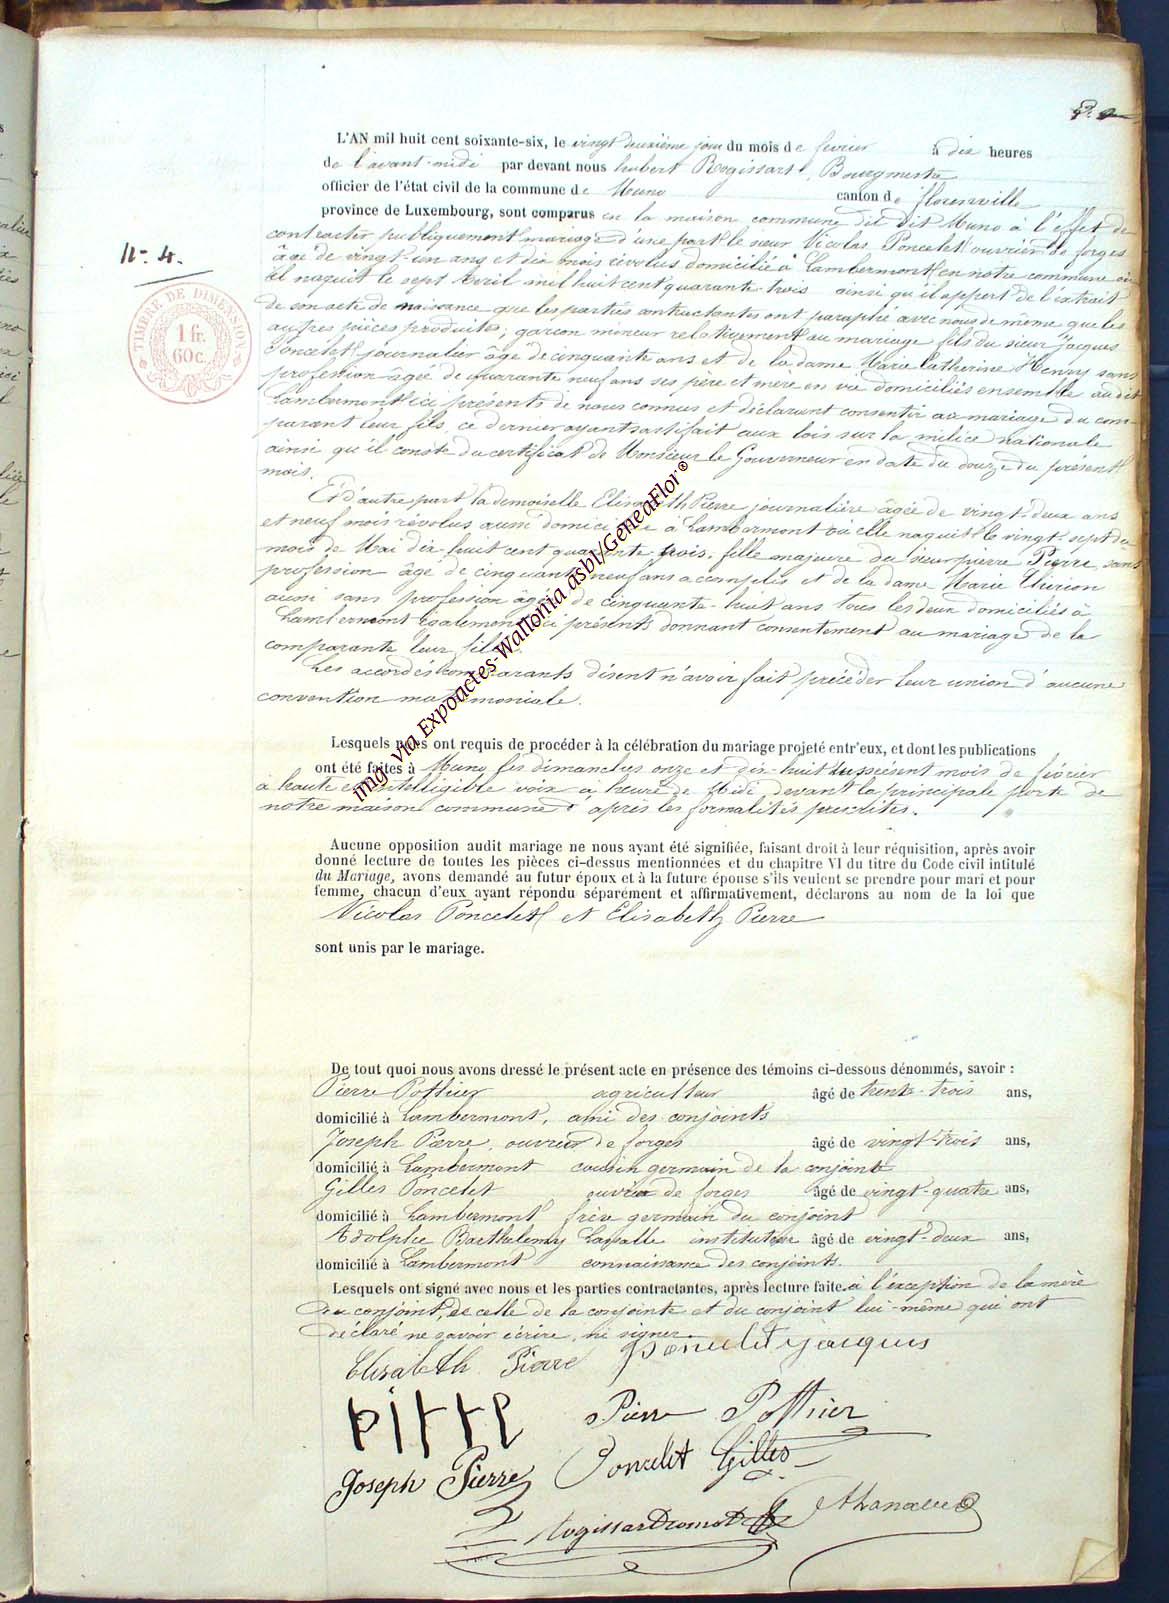 P. 2
L'AN mil huit cent soixante-six, le vingt deuxième jour du mois de février à dix heures
de l'avant-midi par devant nous hubert Rogissart, Bourgmestre
officier de l'état civil de la commune de Muno canton de florenville
province de Luxembourg, sont comparus en la maison commune dudit Muno à l'effet de
contracter publiquement mariage d'une part le sieur Nicolas Poncelet ouvrier de forges
âgé de vingt-un ans et dix mois révolus domicilié à Lambermont en notre commune où
il naquit le sept Avril mil huit cent quarante trois ainsi qu'il appert de l'extrait
de son acte de naissance que les parties contractantes ont paraphé avec nous de même que les
autres pièces produites; garçon mineur relativement au mariage fils du sieur Jacques
Poncelet journalier âgé de cinquante ans et de la dame Marie Catherine Henry sans
profession âgée de quarante neuf ans ses père et mère en vie domiciliés ensemble audit
Lambermont ici présents de nous connus et déclarant consentir au mariage du com-
parant leur fils, ce dernier ayant satisfait aux lois sur la milice nationale
ainsi qu'il conste du certificat de Monsieur le Gouverneur en date du douze du présent
mois.
Et d'autre part la demoiselle Elisabeth Pierre journalière âgée de vingt-deux ans
et neuf mois révolus aussi domiciliée à Lambermont où elle naquit le vingt-sept du
mois de Mai dix huit cent quarante trois, fille majeure du sieur pierre Pierre, sans
profession âgé de cinquante neuf ans accomplis et de la dame Marie Thirion
aussi sans profession âgée de cinquante-huit ans tous les deux domiciliés à
Lambermont également ici présents donnant consentement au mariage de la
comparante leur fille.
Les accordés comparants disent n'avoir fait précéder leur union d'aucune
convention matrimoniale.
N° 4.
TIMBRE DE DIMENSION
1 fr.
60 c.
img. via Expoactes-Wallonia asbl/GeneaFlor®
Lesquels nous ont requis de procéder à la célébration du mariage projeté entr'eux, et dont les publications
ont été faites à Muno les dimanches onze et dix-huit du présent mois de février
à haute et intelligible voix à heure de Midi devant la principale porte de
notre maison commune d'après les formalités prescrites.
Aucune opposition audit mariage ne nous ayant été signifiée, faisant droit à leur réquisition, après avoir
donné lecture de toutes les pièces ci-dessus mentionnées et du chapitre VI du titre du Code civil intitulé
du Mariage, avons demandé au futur époux et à la future épouse s'ils veulent se prendre pour mari et pour
femme, chacun d'eux ayant répondu séparément et affirmativement, déclarons au nom de la loi que
Nicolas Poncelet et Elisabeth Pierre
sont unis par le mariage.
De tout quoi nous avons dressé le présent acte en présence des témoins ci-dessous dénommés, savoir :
Pierre Pothier agriculteur âgé de trente-trois ans,
domicilié à Lambermont, ami des conjoints
Joseph Pierre, ouvrier de forges âgé de vingt-trois ans,
domicilié à Lambermont cousin germain de la conjointe
Gilles Poncelet ouvrier de forges âgé de vingt-quatre ans,
domicilié à Lambermont frère germain du conjoint
Adolphe Barthelemy Lassalle instituteur âgé de vingt-deux ans,
domicilié à Lambermont connaissance des conjoints.
Lesquels ont signé avec nous et les parties contractantes, après lecture faite. à l'exception de la mère
du conjoint, de celle de la conjointe et du conjoint lui-même qui ont
déclaré ne savoir écrire, ni signer.
Elisabeth Pierre Poncelet jacques
Pierre Pothier
Joseph Pierre Poncelet Gilles